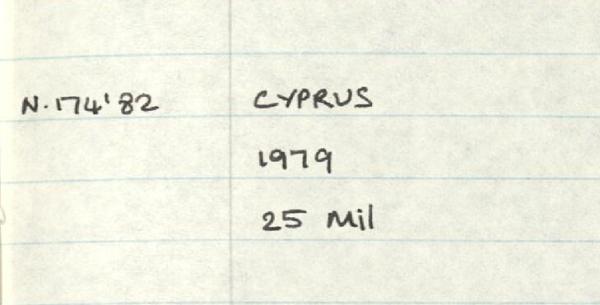 N.174'82 CYPRUS
1979
25 Mil